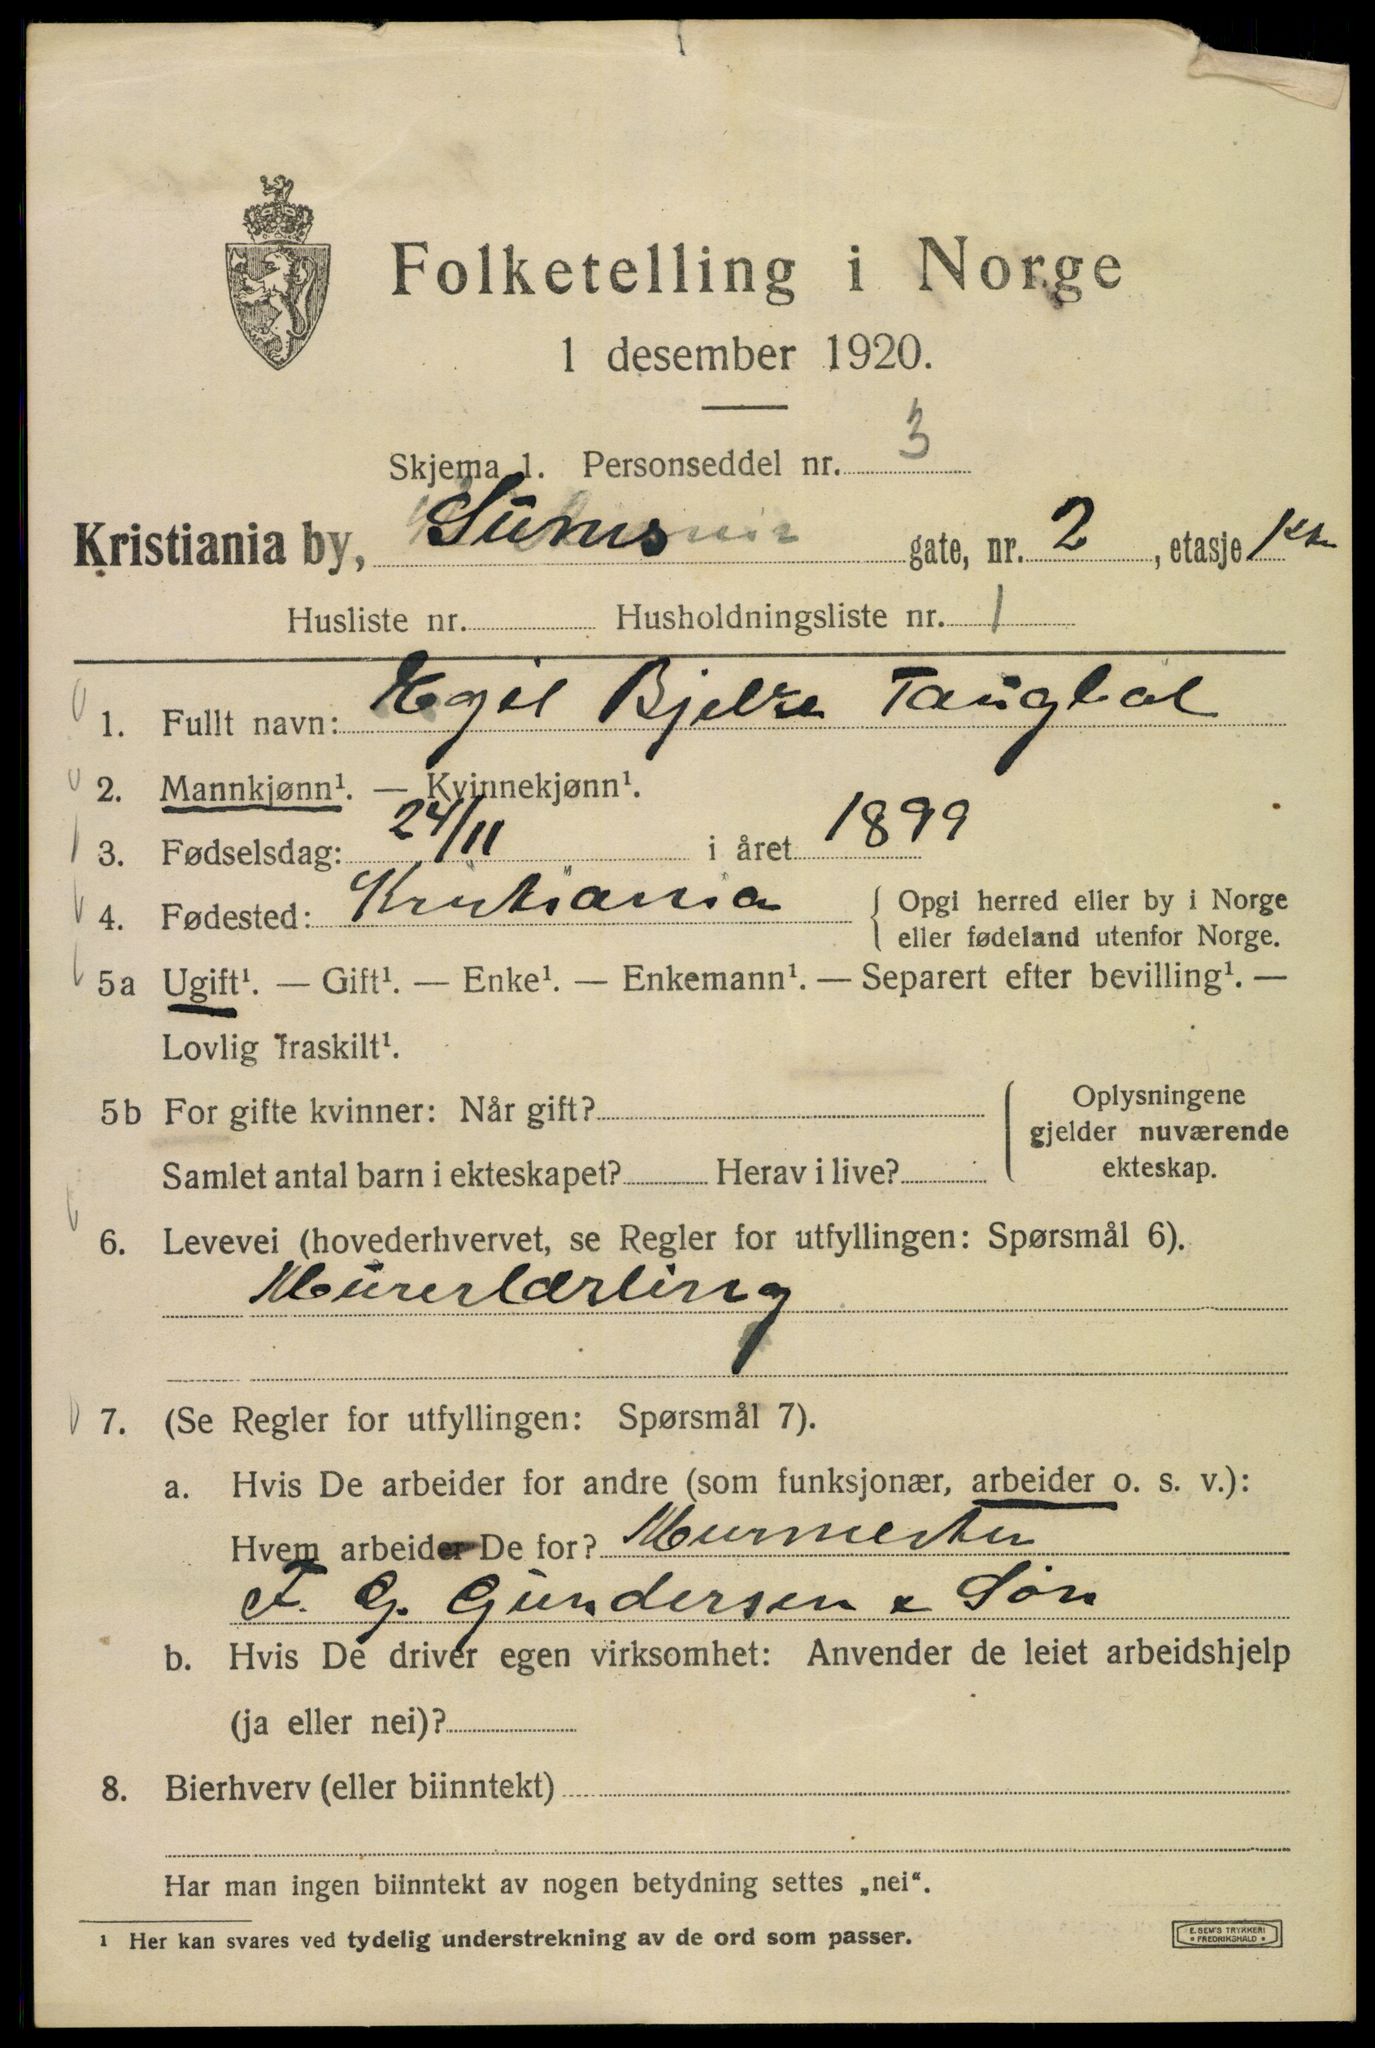 Folketelling i Norge
1 desember 1920.
Skjema 1. Personseddel nr. 3
Kristiania by, Sums gate, nr. 2, etasje
Husliste nr. Husholdningsliste nr. 1
1. Fullt navn: Egil Bjelke Taugbøl
2. Mannkjønn¹. — Kvinnekjønn¹.
3. Fødselsdag: 24/11 i året 1899
4. Fødested: Kristiania { Opgi herred eller by i Norge
eller fødeland utenfor Norge.
5a Ugift¹. — Gift¹. — Enke¹. — Enkemann¹. — Separert efter bevilling¹. —
Lovlig fraskilt¹.
5b For gifte kvinner: Når gift? { Oplysningene
gjelder nuværende
Samlet antal barn i ekteskapet? Herav i live? ekteskap.
6. Levevei (hovederhvervet, se Regler for utfyllingen: Spørsmål 6).
Murerlærling
7. (Se Regler for utfyllingen: Spørsmål 7).
a. Hvis De arbeider for andre (som funksjonær, arbeider o. s. v.):
Hvem arbeider De for? Murmester
F. G. Gundersen & Søn
b. Hvis De driver egen virksomhet: Anvender de leiet arbeidshjelp
(ja eller nei)?
8. Bierhverv (eller biinntekt)
Har man ingen biinntekt av nogen betydning settes „nei“.
¹ Her kan svares ved tydelig understrekning av de ord som passer.
E. SEM'S TRYKKERI
• FREDRIKSHALD •